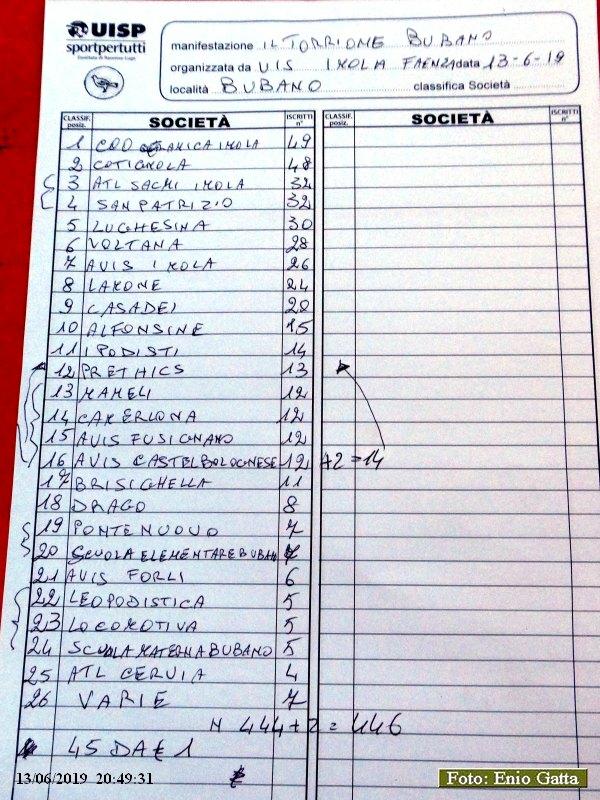 UISP
sportpertutti
manifestazione IL TORRIONE BUBANO
organizzata da UIS IMOLA FAENZA data 13-6-19
località BUBANO classifica Società
CLASSIF. posiz. SOCIETÀ ISCRITTI n° CLASSIF. posiz. SOCIETÀ ISCRITTI n°
1 COO CERAMICA IMOLA 49
2 COTIGNOLA 48
3 ATL SACMI IMOLA 32
4 SAN PATRIZIO 32
5 LUGHESINA 30
6 VOLTANA 28
7 AVIS IMOLA 26
8 LAMONE 24
9 CASADEI 20
10 ALFONSINE 15
11 IPODISTI 14
12 PRETHICS 13
13 MAMELI 12
14 CAMERLONA 12
15 AVIS FUSIGNANO 12
16 AVIS CASTELBOLOGNESE 12 +2 = 14
17 BRISIGHELLA 11
18 DRAGO 8
19 PONTE NUOVO 7
20 SCUOLA ELEMENTARE BUBAN 7
21 AVIS FORLI 6
22 LEOPODISTICA 5
23 LOCOMOTIVA 5
24 SCUOLA MATERNA BUBANO 5
25 ATL CERVIA 4
26 VARIE 7
N 444+2 = 446
45 DA € 1
13/06/2019 20:49:31
Foto: Enio Gatta